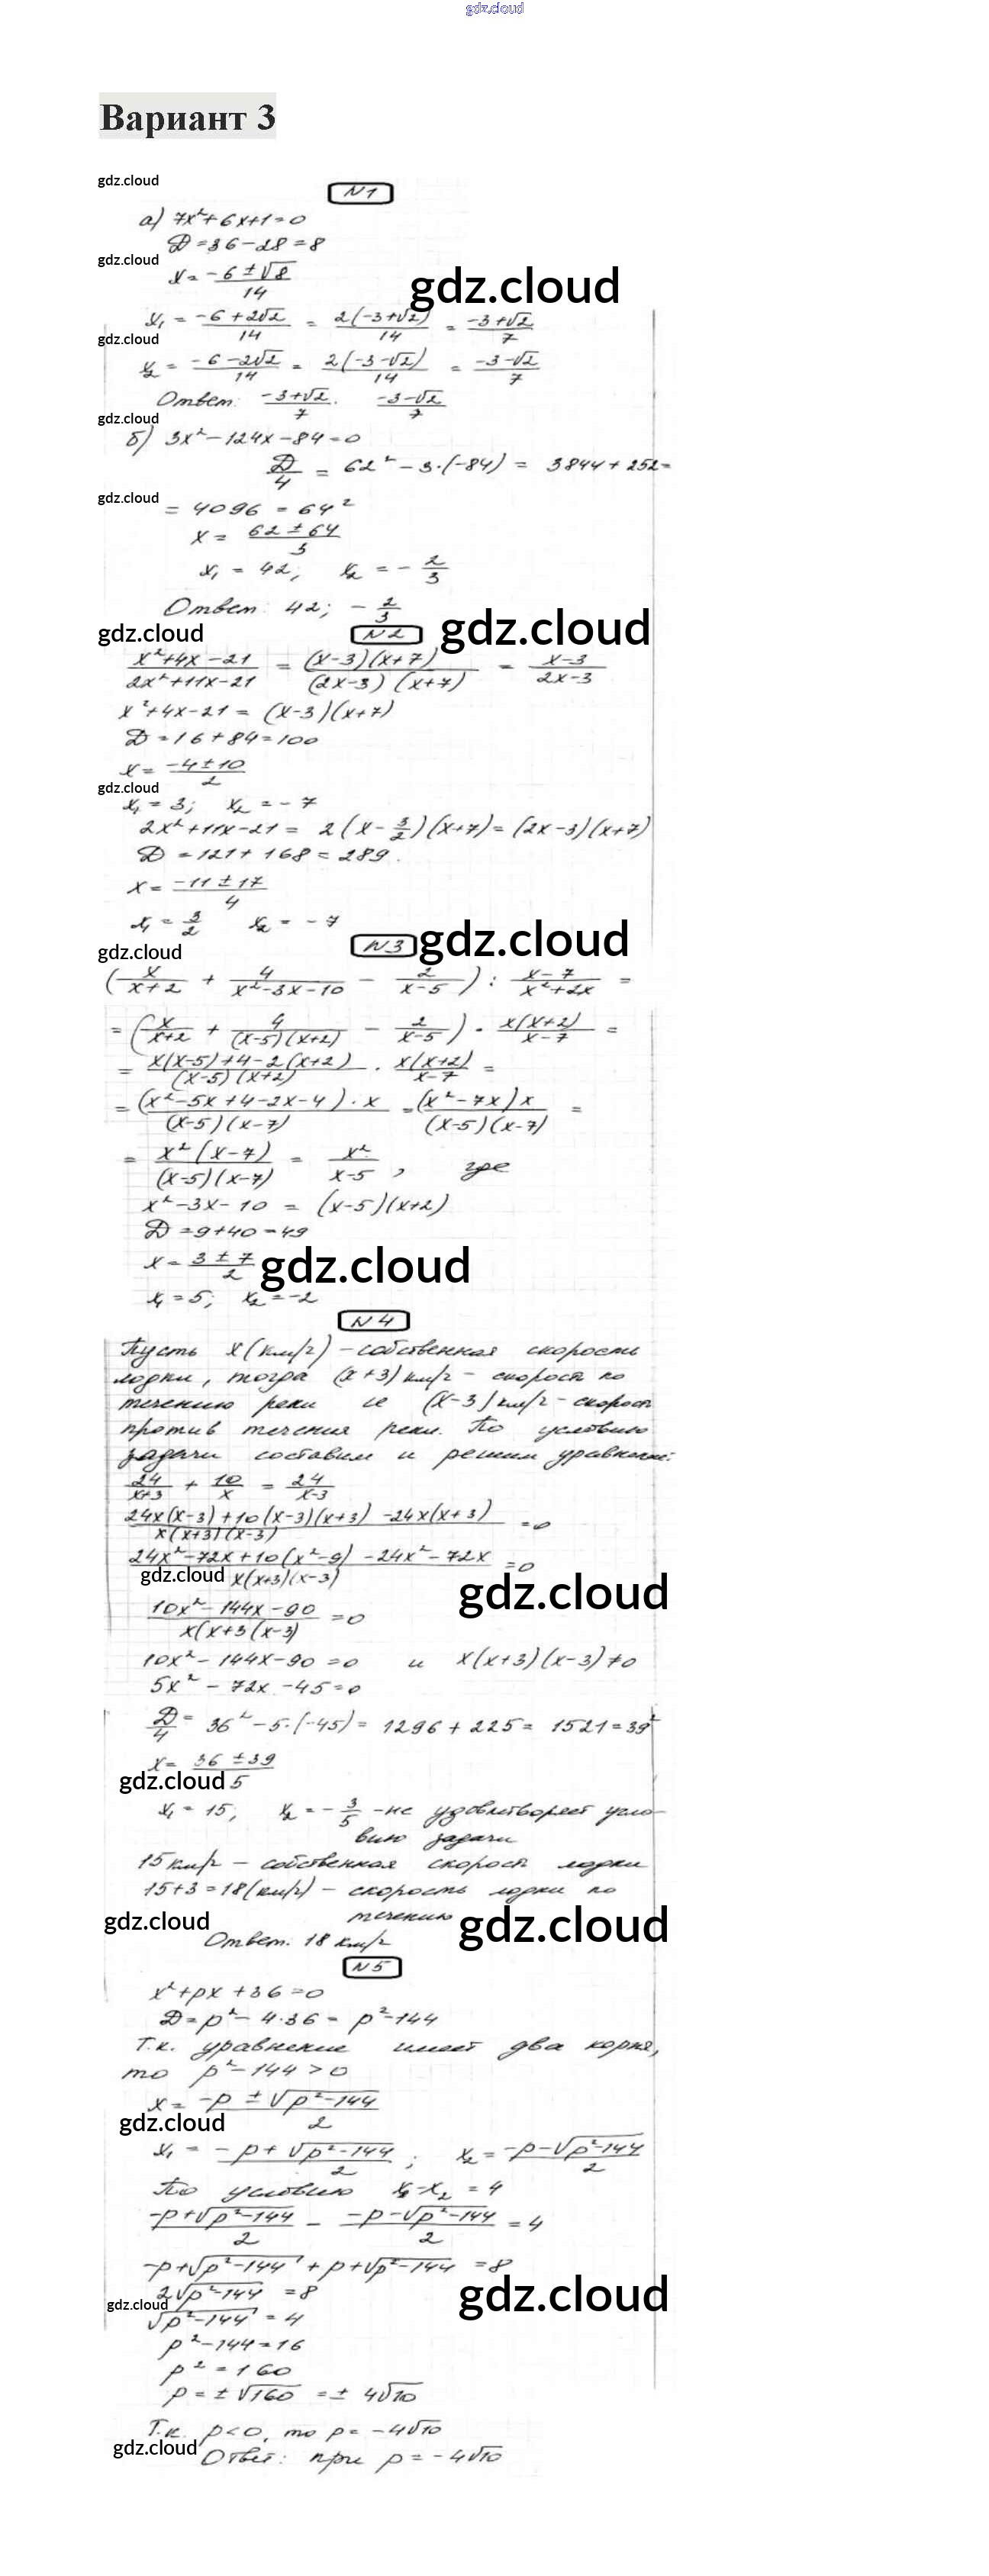 gdz.cloud
Вариант 3
gdz.cloud
N1
а) 7x²+6x+1=0
D=36-28=8
gdz.cloud
x= (-6±√8)/14
gdz.cloud
x₁ = (-6+2√2)/14 = 2(-3+√2)/14 = (-3+√2)/7
gdz.cloud
x₂ = (-6-2√2)/14 = 2(-3-√2)/14 = (-3-√2)/7
Ответ: (-3+√2)/7. (-3-√2)/7
gdz.cloud
б) 3x²-124x-84=0
D/4 = 62²-3·(-84) = 3844+252=
gdz.cloud
= 4096 = 64²
x = (62±64)/3
x₁ = 42; x₂ = -2/3
Ответ: 42; -2/3
gdz.cloud
N2
gdz.cloud
(x²+4x-21)/(2x²+11x-21) = (x-3)(x+7)/(2x-3)(x+7) = (x-3)/(2x-3)
x²+4x-21 = (x-3)(x+7)
D=16+84=100
x= (-4±10)/2
gdz.cloud
x₁ = 3; x₂ = -7
2x²+11x-21 = 2(x-3/2)(x+7)=(2x-3)(x+7)
D=121+168=289.
x= (-11±17)/4
x₁ = 3/2 x₂ = -7
gdz.cloud
N3
gdz.cloud
(x/(x+2) + 4/(x²-3x-10) - 2/(x-5)) : (x-7)/(x²+2x) =
= (x/(x+2) + 4/(x-5)(x+2) - 2/(x-5)) · x(x+2)/(x-7) =
= (x(x-5)+4-2(x+2))/(x-5)(x+2) · x(x+2)/(x-7) =
= (x²-5x+4-2x-4)·x/(x-5)(x-7) = (x²-7x)x/(x-5)(x-7) =
= x²(x-7)/(x-5)(x-7) = x²/(x-5), где
x²-3x-10 = (x-5)(x+2)
D=9+40=49
x= (3±7)/2
gdz.cloud
x₁ = 5; x₂ = -2
N4
Пусть x(км/ч) - собственная скорость
лодки, тогда (x+3)км/ч - скорость по
течению реки и (x-3)км/ч - скорость
против течения реки. По условию
задачи составим и решим уравнение:
24/(x+3) + 10/x = 24/(x-3)
(24x(x-3)+10(x-3)(x+3)-24x(x+3))/x(x+3)(x-3) =0
(24x²-72x+10(x²-9)-24x²-72x)/x(x+3)(x-3) =0
gdz.cloud
gdz.cloud
(10x²-144x-90)/x(x+3(x-3) =0
10x²-144x-90=0 и x(x+3)(x-3)≠0
5x²-72x-45=0
D/4 = 36²-5·(-45)= 1296+225= 1521=39²
x= (36±39)/5
gdz.cloud
x₁ = 15; x₂ = -3/5 -не удовлетворяет усло-
вию задачи
15 км/ч - собственная скорость лодки
15+3=18(км/ч) - скорость лодки по
течению
gdz.cloud
gdz.cloud
Ответ. 18 км/ч
N5
x²+px+36=0
D=p²-4·36= p²-144
Т.к. уравнение имеет два корня,
то p²-144>0
x= (-p±√(p²-144))/2
gdz.cloud
x₁ = (-p+√(p²-144))/2; x₂= (-p-√(p²-144))/2
По условию x₁-x₂ = 4
(-p+√(p²-144))/2 - (-p-√(p²-144))/2 =4
-p+√(p²-144)+p+√(p²-144) =8
2√(p²-144) =8
gdz.cloud
gdz.cloud
√(p²-144) =4
p²-144=16
p²=160
p=±√160 =± 4√10
Т.к. p<0, то p= -4√10
gdz.cloud
Ответ: при p= -4√10